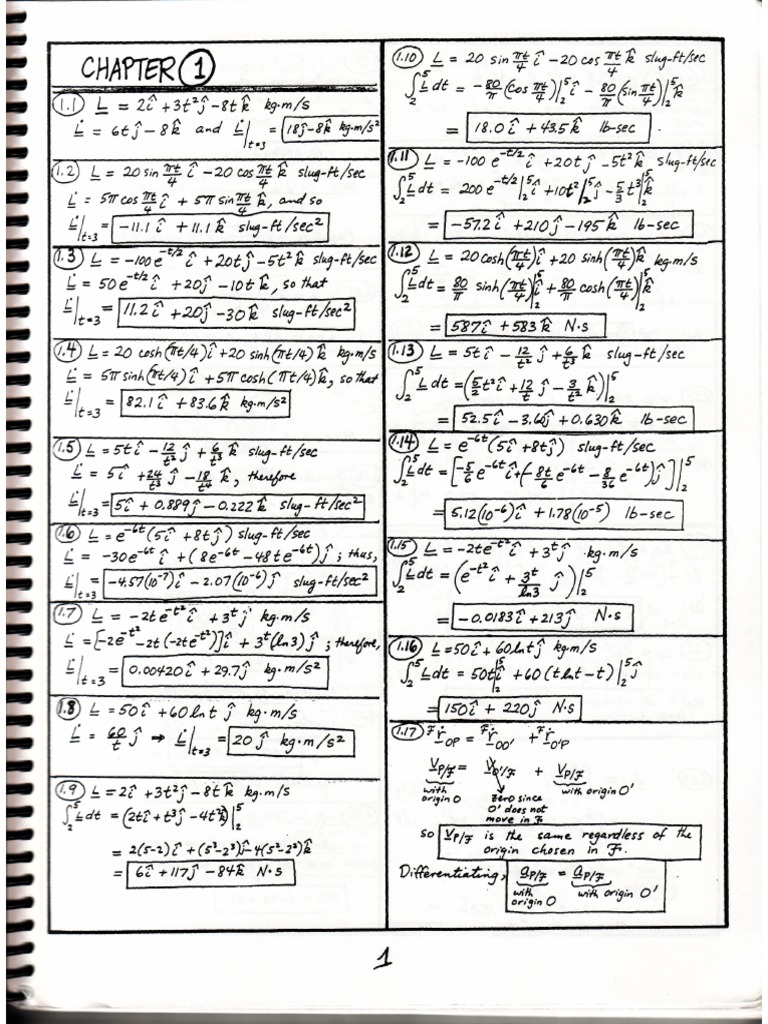 CHAPTER 1
1.1 L = 2î + 3t²ĵ - 8tk̂ kg·m/s
L̇ = 6tĵ - 8k̂ and L̇|t=3 = 18ĵ - 8k̂ kg·m/s²
1.2 L = 20 sin πt/4 î - 20 cos πt/4 k̂ slug-ft/sec
L̇ = 5π cos πt/4 î + 5π sin πt/4 k̂, and so
L̇|t=3 = -11.1 î + 11.1 k̂ slug-ft/sec²
1.3 L = -100e^(-t/2) î + 20tĵ - 5t²k̂ slug-ft/sec
L̇ = 50e^(-t/2) î + 20ĵ - 10tk̂, so that
L̇|t=3 = 11.2î + 20ĵ - 30k̂ slug-ft/sec²
1.4 L = 20 cosh(πt/4)î + 20 sinh(πt/4)k̂ kg·m/s
L̇ = 5π sinh(πt/4)î + 5π cosh(πt/4)k̂, so that
L̇|t=3 = 82.1î + 83.6k̂ kg·m/s²
1.5 L = 5tî - 12/t² ĵ + 6/t³ k̂ slug-ft/sec
L̇ = 5î + 24/t³ ĵ - 18/t⁴ k̂, therefore
L̇|t=3 = 5î + 0.889ĵ - 0.222k̂ slug-ft/sec²
1.6 L = e^(-6t)(5î + 8tĵ) slug-ft/sec
L̇ = -30e^(-6t) î + (8e^(-6t) - 48te^(-6t))ĵ; thus,
L̇|t=3 = -4.57(10⁻⁷)î - 2.07(10⁻⁶)ĵ slug-ft/sec²
1.7 L = -2te^(-t²) î + 3^t ĵ kg·m/s
L̇ = [-2e^(-t²) - 2t(-2te^(-t²))]î + 3^t(ln3)ĵ; therefore,
L̇|t=3 = 0.00420î + 29.7ĵ kg·m/s²
1.8 L = 50î + 60 ln t ĵ kg·m/s
L̇ = 60/t ĵ → L̇|t=3 = 20ĵ kg·m/s²
1.9 L = 2î + 3t²ĵ - 8tk̂ kg·m/s
∫₂⁵ L dt = (2tî + t³ĵ - 4t²k̂)|₂⁵
= 2(5-2)î + (5³-2³)ĵ - 4(5²-2²)k̂
= 6î + 117ĵ - 84k̂ N·s
1.10 L = 20 sin πt/4 î - 20 cos πt/4 k̂ slug-ft/sec
∫₂⁵ L dt = -80/π (cos πt/4)|₂⁵ î - 80/π (sin πt/4)|₂⁵ k̂
= 18.0î + 43.5k̂ lb-sec.
1.11 L = -100e^(-t/2) î + 20tĵ - 5t²k̂ slug-ft/sec
∫₂⁵ L dt = 200e^(-t/2)|₂⁵ î + 10t²|₂⁵ ĵ - 5/3 t³|₂⁵ k̂
= -57.2î + 210ĵ - 195k̂ lb-sec
1.12 L = 20 cosh(πt/4)î + 20 sinh(πt/4)k̂ kg·m/s
∫₂⁵ L dt = 80/π sinh(πt/4)|₂⁵ î + 80/π cosh(πt/4)|₂⁵ k̂
= 587î + 583k̂ N·s
1.13 L = 5tî - 12/t² ĵ + 6/t³ k̂ slug-ft/sec
∫₂⁵ L dt = (5/2 t²î + 12/t ĵ - 3/t² k̂)|₂⁵
= 52.5î - 3.60ĵ + 0.630k̂ lb-sec
1.14 L = e^(-6t)(5î + 8tĵ) slug-ft/sec
∫₂⁵ L dt = [-5/6 e^(-6t) î + (-8t/6 e^(-6t) - 8/36 e^(-6t))ĵ]|₂⁵
= 5.12(10⁻⁶)î + 1.78(10⁻⁵) lb-sec
1.15 L = -2te^(-t²) î + 3^t ĵ kg·m/s
∫₂⁵ L dt = (e^(-t²) î + 3^t/ln3 ĵ)|₂⁵
= -0.0183î + 213ĵ N·s
1.16 L = 50î + 60 ln t ĵ kg·m/s
∫₂⁵ L dt = 50t|₂⁵ î + 60(t ln t - t)|₂⁵ ĵ
= 150î + 220ĵ N·s
1.17 ᶠṙ_OP = ᶠṙ_OO' + ᶠṙ_O'P
v_P/F = v_O'/F + v_P/F
with origin O zero since O' does not move in F with origin O'
so v_P/F is the same regardless of the
origin chosen in F.
Differentiating, a_P/F = a_P/F
with origin O with origin O'
1